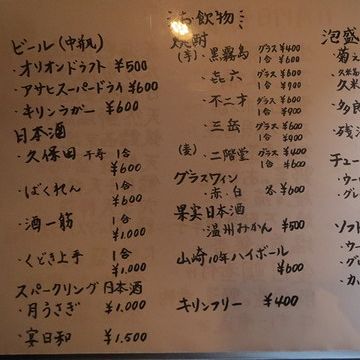 お飲物
ビール(中瓶)
・オリオンドラフト ¥500
・アサヒスーパードライ ¥600
・キリンラガー ¥600
日本酒
・久保田 千寿 1合 ¥600
・ばくれん 1合 ¥600
・酒一筋 1合 ¥1,000
・くどき上手 1合 ¥1,000
スパークリング日本酒
・月うさぎ ¥1,000
・宴日和 ¥1,500
焼酎
(芋)・黒霧島 グラス ¥400 1合 ¥600
・㐂六 グラス ¥600 1合 ¥900
・不二才 グラス ¥600 1合 ¥900
・三岳 グラス ¥600 1合 ¥900
(麦)・二階堂 グラス ¥400 1合 ¥600
グラスワイン
・赤・白 各 ¥600
果実日本酒
・温州みかん ¥500
山崎10年ハイボール ¥600
キリンフリー ¥400
泡盛
・菊
・久米
久米
・多良
・残
チュー
・ウー
・グレ
ソフト
・ウー
・グレ
・カ